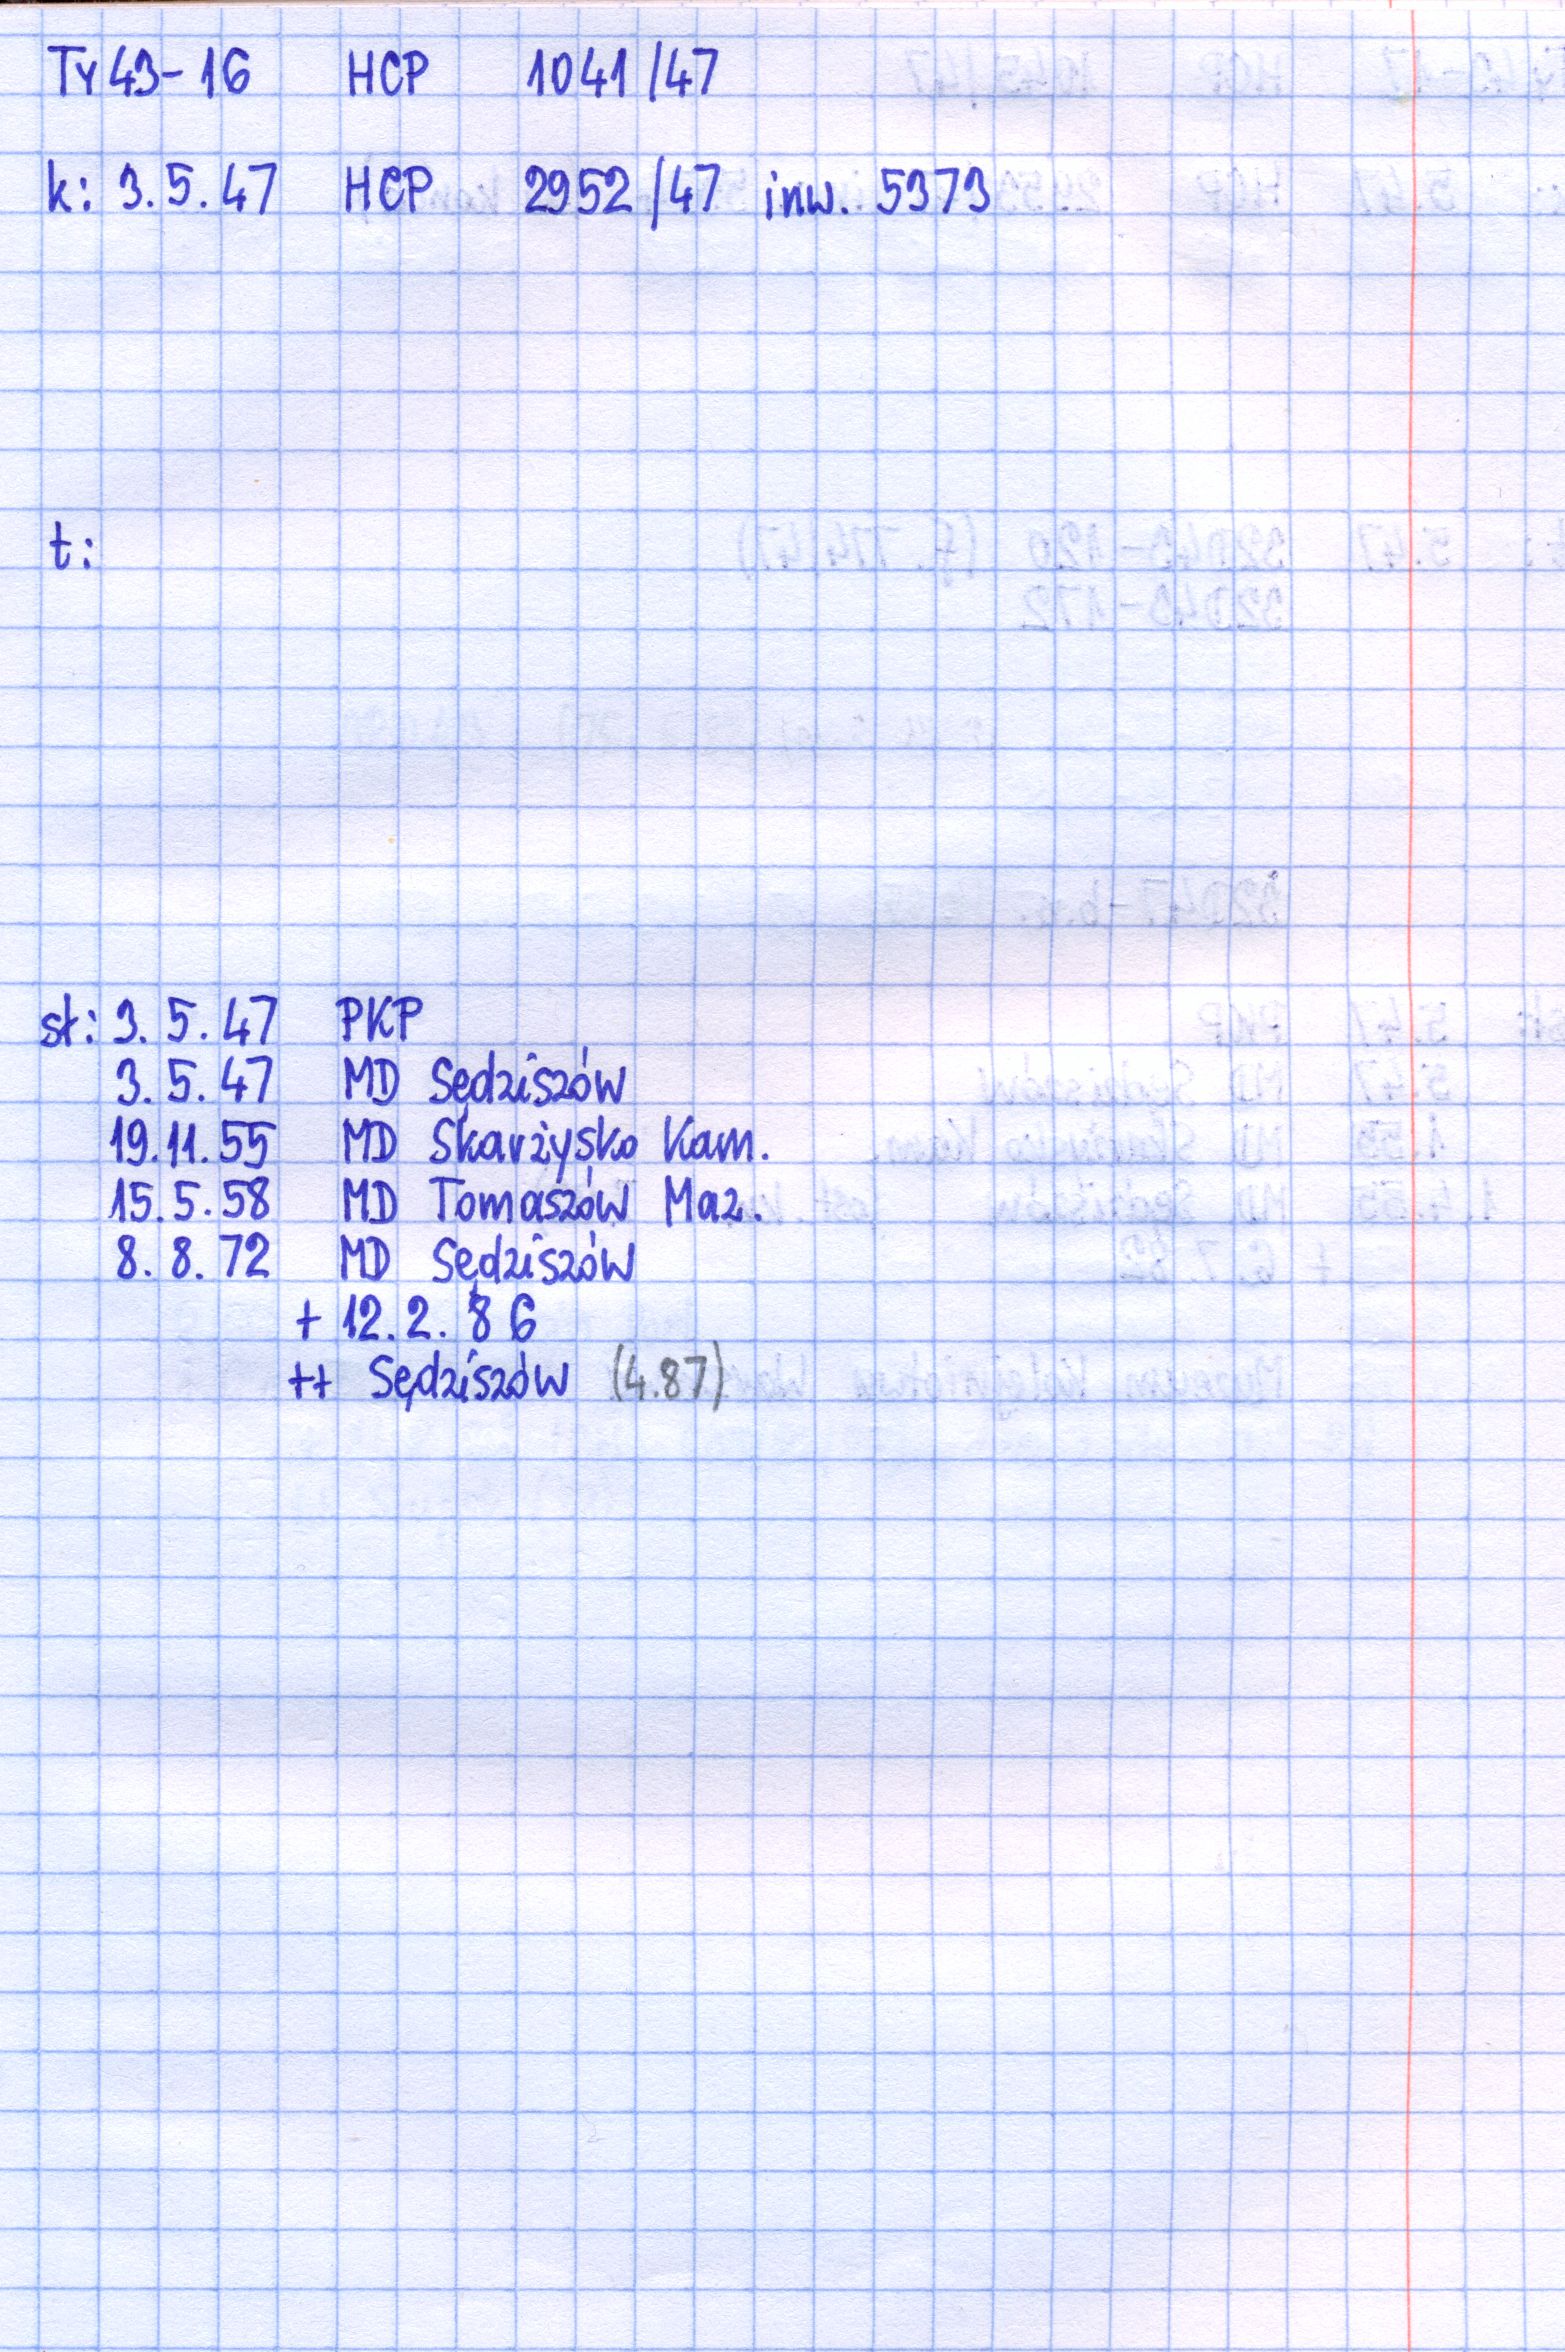 Ty 43-16 HCP 1041/47
k: 3.5.47 HCP 2952/47 inw. 5373
t:
st: 3.5.47 PKP
3.5.47 MD Sędziszów
19.11.55 MD Skarżysko Kam.
15.5.58 MD Tomaszów Maz.
8.8.72 MD Sędziszów
+ 12.2.86
++ Sędziszów (4.87)